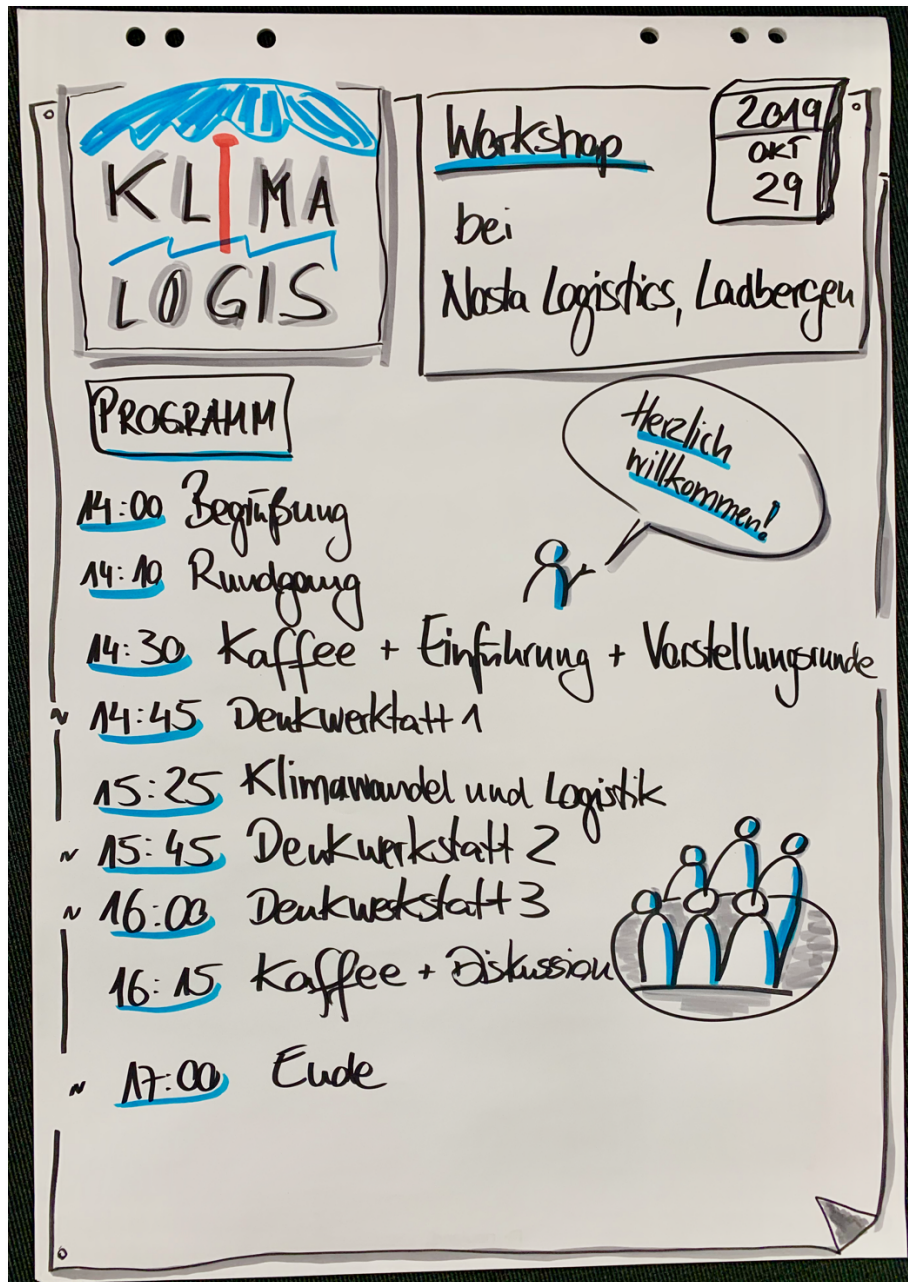 KLIMA
LOGIS
Workshop
bei
Nosta Logistics, Ladbergen
2019
OKT
29
PROGRAMM
Herzlich
willkommen!
14:00 Begrüßung
14:10 Rundgang
14:30 Kaffee + Einführung + Vorstellungsrunde
~ 14:45 Denkwerktatt 1
15:25 Klimawandel und Logistik
~ 15:45 Denkwerkstatt 2
~ 16:00 Denkwekstatt 3
16:15 Kaffee + Diskussion
~ 17:00 Ende